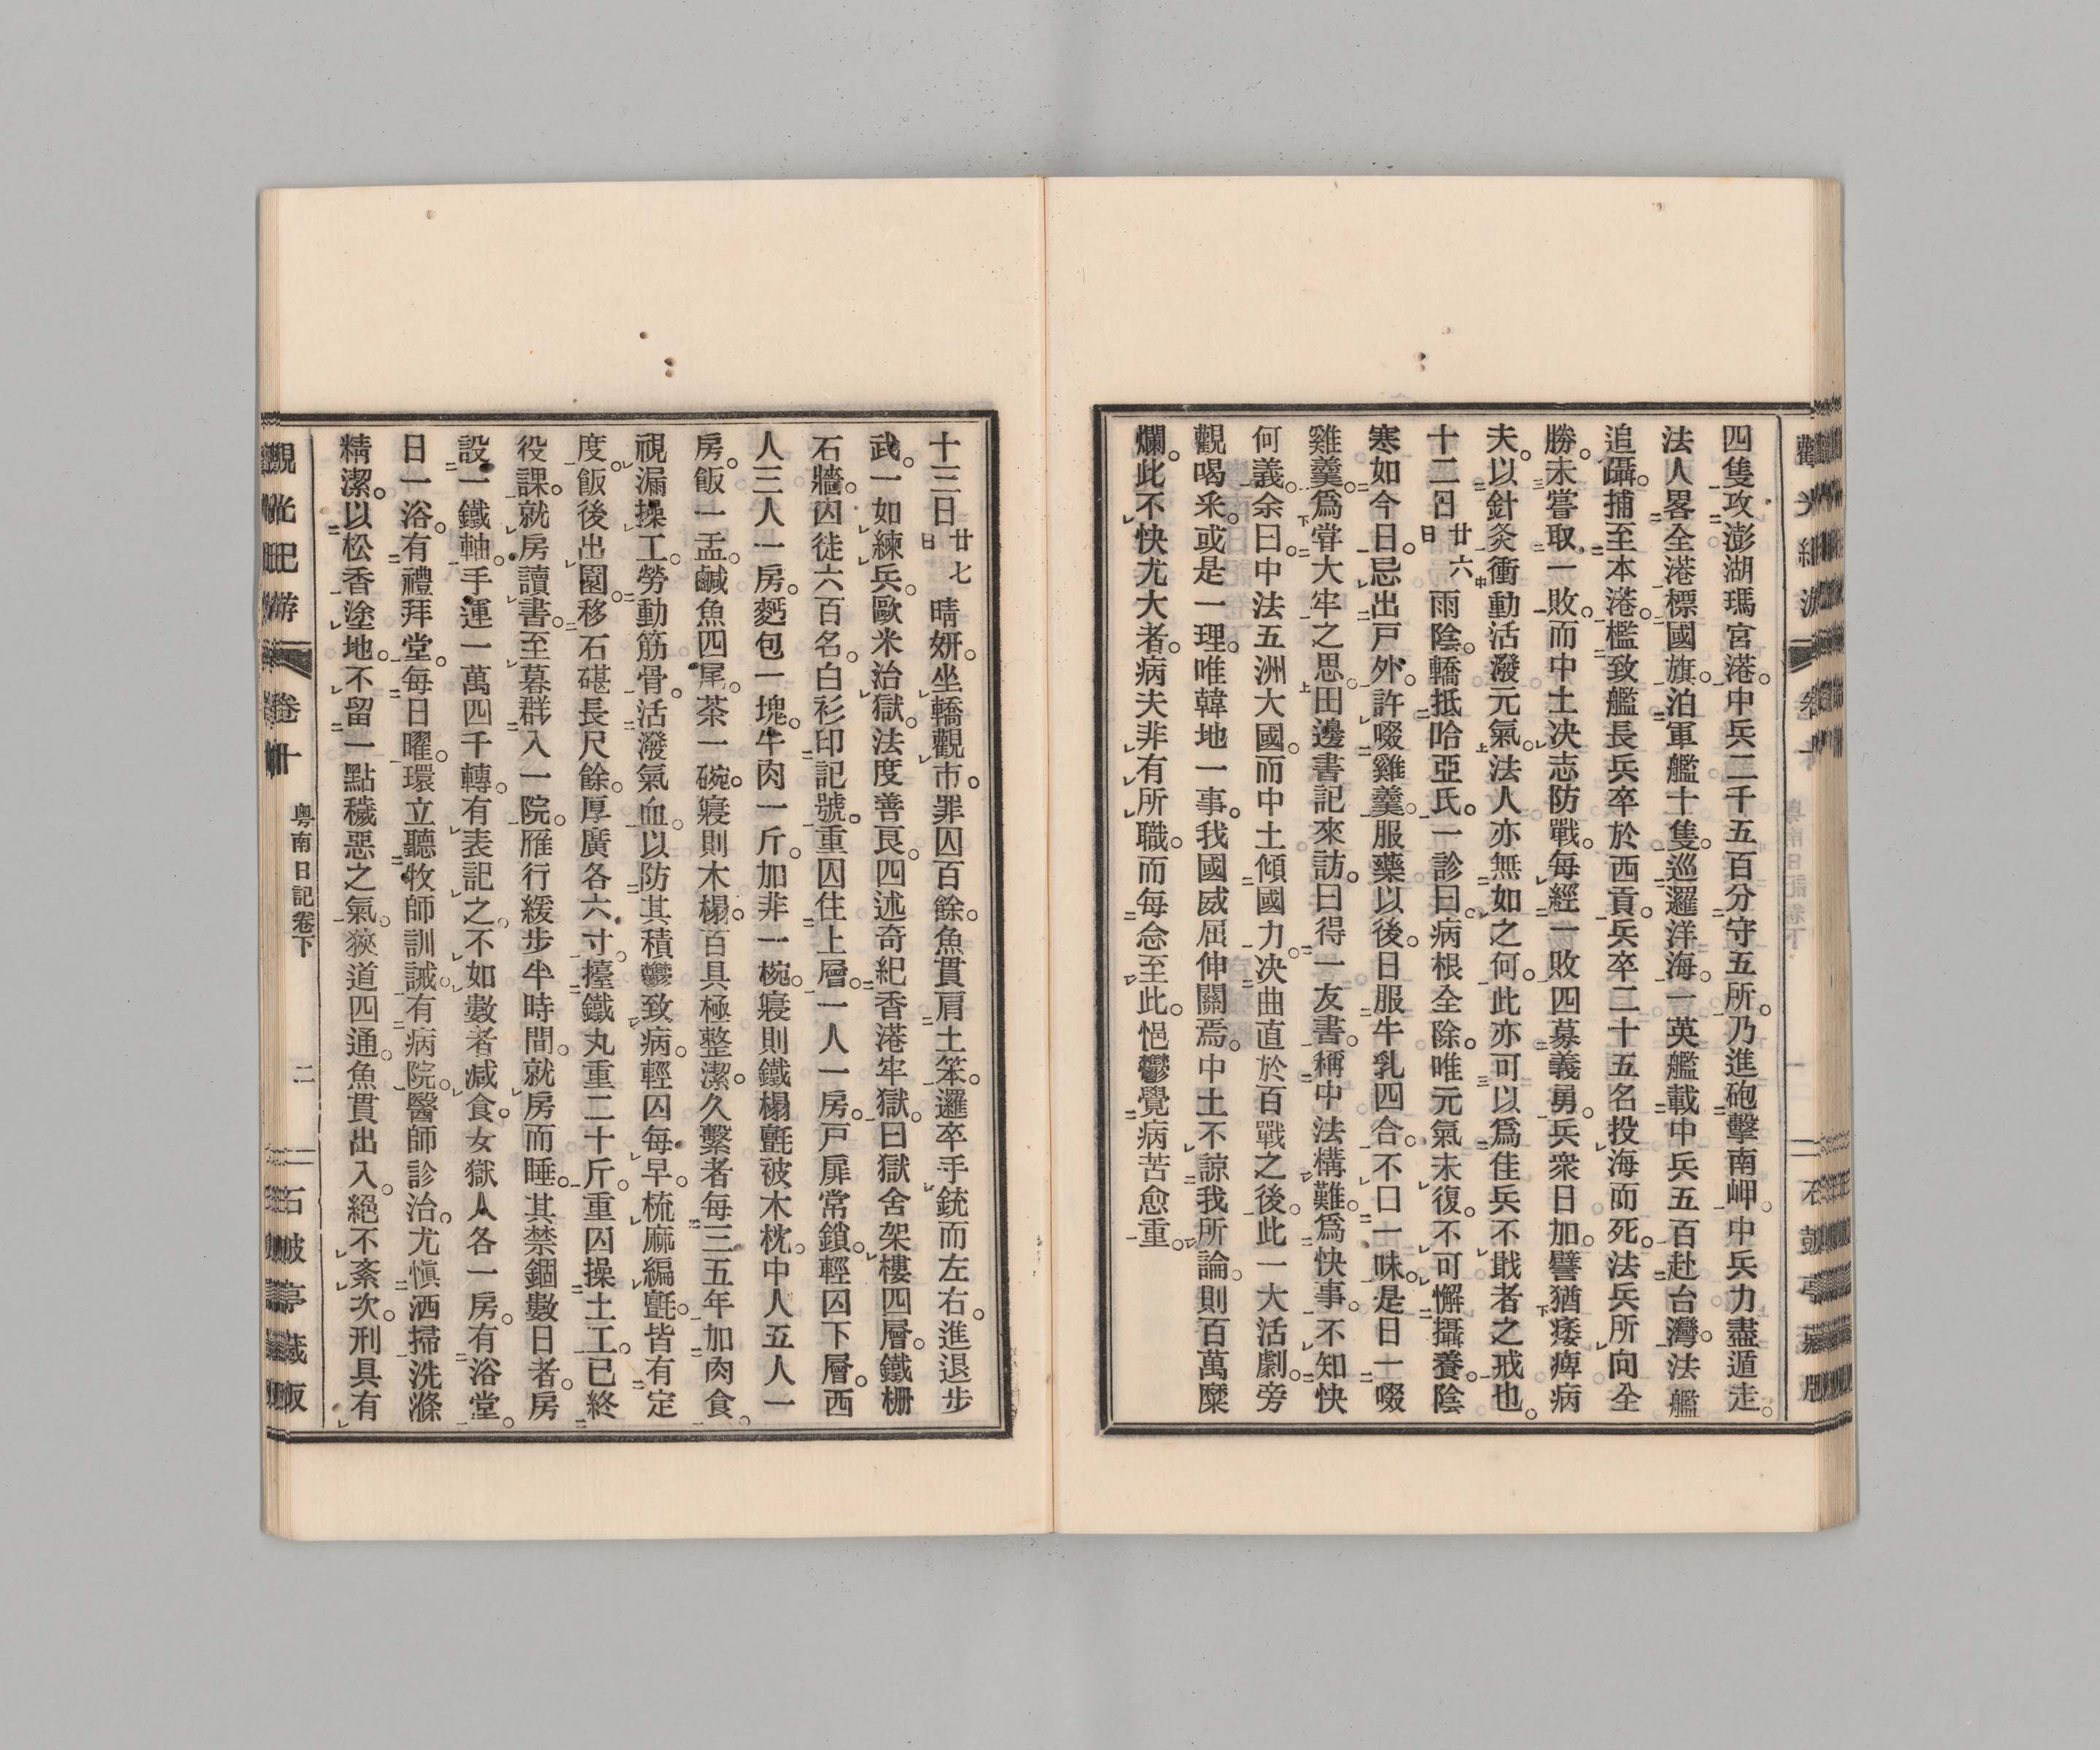 四隻攻澎湖瑪宮港。中兵二千五百分守五所。乃進砲擊南岬。中兵力盡遁走。
法人畧全港標國旗。泊軍艦十隻。巡邏洋海。一英艦載中兵五百赴台灣。法艦
追躡。捕至本港。檻致艦長兵卒於西貢。兵卒二十五名投海而死。法兵所向全
勝。未嘗取一敗。而中土决志防戰。每經一敗四募義勇。兵衆日加。譬猶痿痺病
夫。以針灸衝動活潑元氣。法人亦無如之何。此亦可以爲佳兵不戢者之戒也。
十二日廿六日雨陰。轎抵哈亞氏。一診曰。病根全除。唯元氣未復。不可懈攝養。陰
寒如今日。忌出戸外。許啜雞羹。服藥以後。日服牛乳四合。不口一味。是日一啜
雞羹。爲嘗大牢之思。田邊書記來訪。曰得一友書。稱中法構難。爲快事。不知快
何義。余曰。中法五洲大國。而中土傾國力。决曲直於百戰之後。此一大活劇。旁
觀喝采。或是一理。唯韓地一事。我國威屈伸關焉。中土不諒我所論。則百萬糜
爛。此不快尤大者。病夫非有所職。而每念至此。悒鬱覺病苦愈重。
十三日廿七日晴妍。坐轎觀市。罪囚百餘。魚貫肩土笨。邏卒手銃而左右。進退步
武。一如練兵。歐米治獄。法度善良。四述奇紀香港牢獄。曰獄舍架樓四層。鐵柵
石牆。囚徒六百名。白衫印記號。重囚住上層。一人一房。戸扉常鎖。輕囚下層。西
人三人一房。麪包一塊。牛肉一斤。加非一椀。寢則鐵榻氈被木枕。中人五人一
房。飯一盂。鹹魚四尾。茶一碗。寢則木榻。百具極整潔。久繫者每三五年加肉食。
視漏操工。勞動筋骨。活潑氣血。以防其積鬱致病。輕囚每早。梳麻編氈。皆有定
度。飯後出園。移石碪長尺餘。厚廣各六寸。擡鐵丸重二十斤。重囚操土工。已終
役課。就房讀書。至暮群入一院。雁行緩步半時間。就房而睡。其禁錮數日者。房
設一鐵軸。手運一萬四千轉。有表記之。不如數者減食。女獄人各一房。有浴堂。
日一浴。有禮拜堂。每日曜。環立聽牧師訓誡。有病院。醫師診治。尤愼洒掃洗滌
精潔。以松香塗地。不留一點穢惡之氣。狹道四通。魚貫出入。絕不紊次。刑具有
觀光紀游 卷十 粤南日記卷下 二 石鼓亭藏版